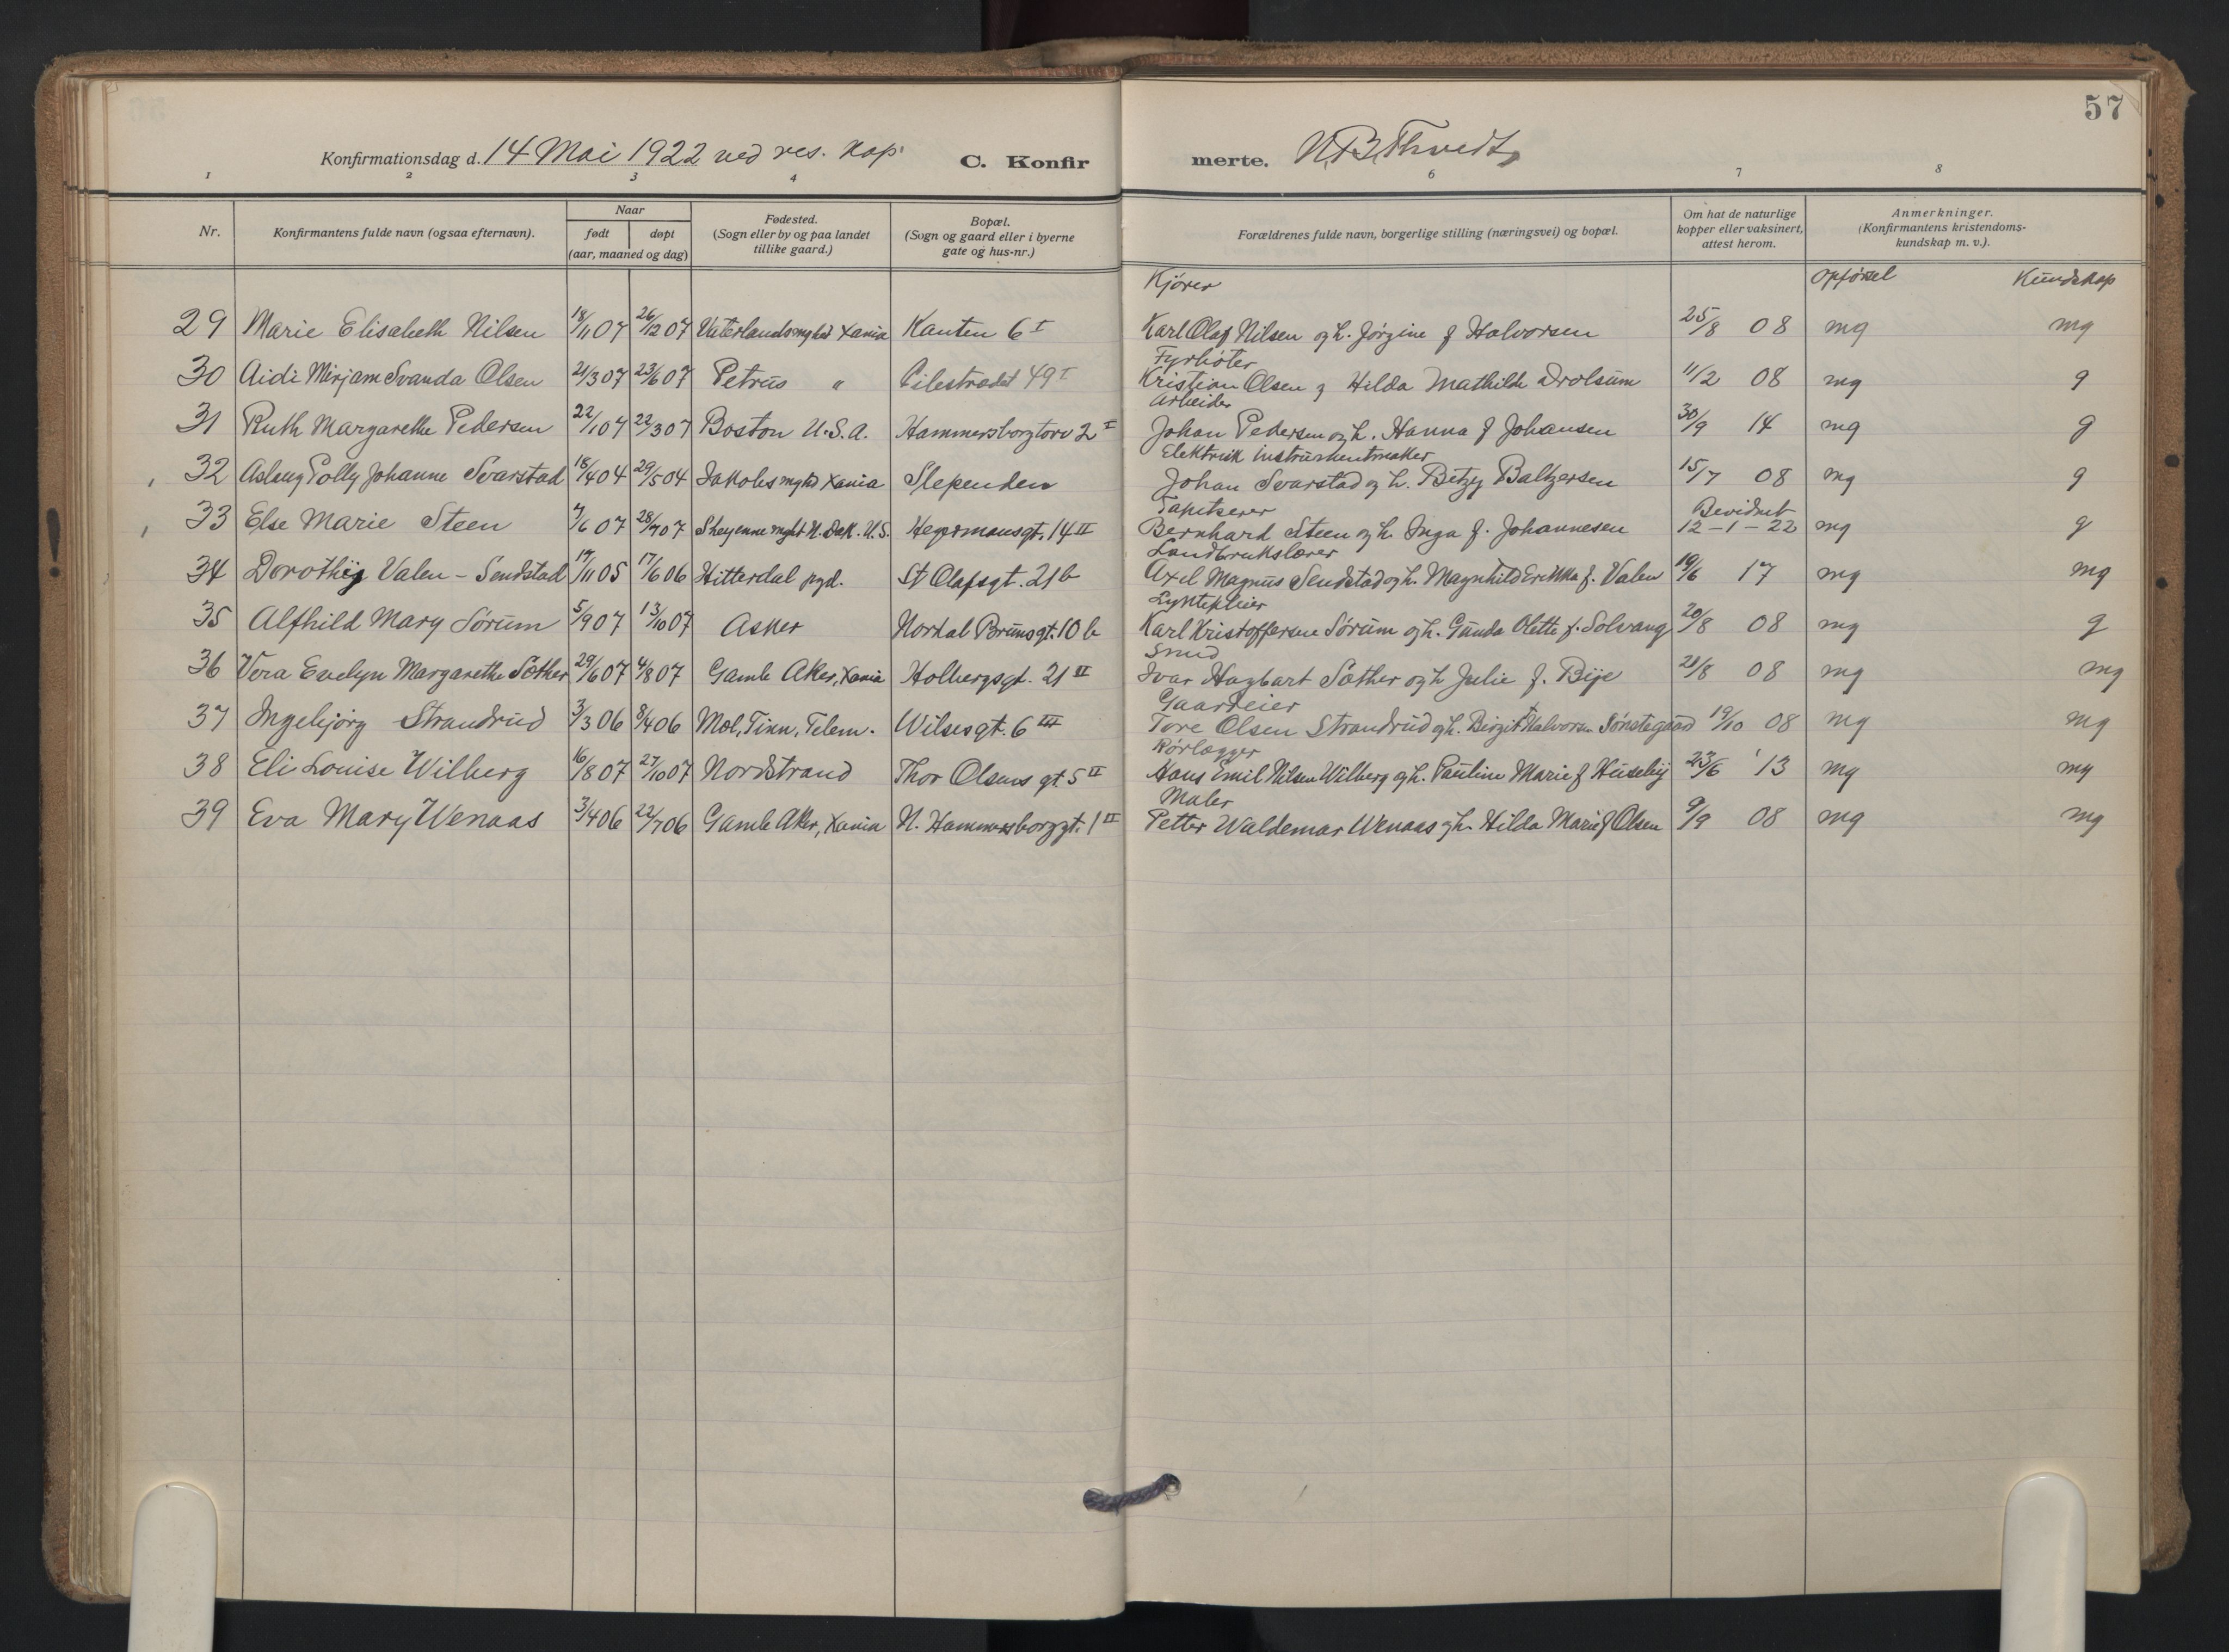 57
Konfirmationsdag d. 14 Mai 1922 ved res. kap. C. Konfirmerte. N. B. Thvedt
1 2 3 4 6 7 8
Nr.
Konfirmantens fulde navn (ogsaa efternavn).
Naar
født døpt
(aar, maaned og dag)
Fødested.
(Sogn eller by og paa landet
tillike gaard.)
Bopæl.
(Sogn og gaard eller i byerne
gate og hus-nr.)
Forældrenes fulde navn, borgerlige stilling (næringsvei) og bopæl.
Om hat de naturlige
kopper eller vaksinert,
attest herom.
Anmerkninger.
(Konfirmantens kristendoms-
kundskap m. v.).
Kjører Opførsel Kundskap
29 Marie Elisabeth Nilsen 18/11 07 26/12 07 Vaterlandsmghed Xania Kanten 6 I Karl Olaf Nilsen og h. Jørgine f Halvorsen 25/8 08 mg mg
Fyrbøter
30 Aidi Mirjam Svanda Olsen 21/3 07 23/6 07 Petrus " Pilestrædet 49 I Kristian Olsen og Hilda Mathilde Drolsum 11/2 08 mg g
Arbeider
31 Ruth Margarethe Pedersen 22/1 07 22/3 07 Boston U.S.A. Hammersborgtorv 2 I Johan Pedersen og h. Hanna f Johansen 30/9 14 mg g
Elektrisk instrumentmaker
32 Aslaug Polly Johanne Svarstad 18/4 04 29/5 04 Jakobs mghd Xania Slependen Johan Svarstad og h. Betzy Baltzersen 15/7 08 mg g
Tapetserer Bevidnet
33 Else Marie Steen 7/6 07 28/7 07 Sheyenne mght N. Dak. U.S. Hegermansgt. 14 II Bernhard Steen og h. Inga f. Johannesen 12-1-22 mg g
Landbrukslærer
34 Dorothy Valen-Sendstad 19/11 05 17/6 06 Hitterdal pgd. St Olafsgt. 21 b Axel Magnus Sendstad og h. Magnhild Erikka f. Valen 19/6 17 mg mg
35 Alfhild Mary Sørum 5/9 07 13/10 07 Asker Nordal Brunsgt. 10 b Karl Kristoffersen Sørum og h. Gunda Olette f. Solvang 20/8 08 mg g
Smed
36 Vera Evelyn Margarethe Sæther 29/6 07 4/8 07 Gamle Aker, Xania Holbergsgt. 21 II Ivar Hagbart Sæther og h Julie f. Bije 21/8 08 mg mg
Gaardeier
37 Ingebjørg Strandrud 3/3 06 8/4 06 Mæl, Tinn, Telem. Wilsesgt. 6 III Tore Olsen Strandrud og h. Birgit Halvorsen 19/10 08 mg mg
Rørlægger
38 Eli Louise Wilberg 16/8 07 27/10 07 Nordstrand Thor Olsens gt. 5 II Hans Emil Nilsen Wilberg og h. Pauline Marie f Huseby 23/6 '13 mg mg
Maler
39 Eva Mary Wenaas 3/4 06 22/7 06 Gamle Aker, Xania N. Hammersborggt. 1 II Petter Waldemar Wenaas og h. Hilda Marie f Olsen 9/9 08 mg mg